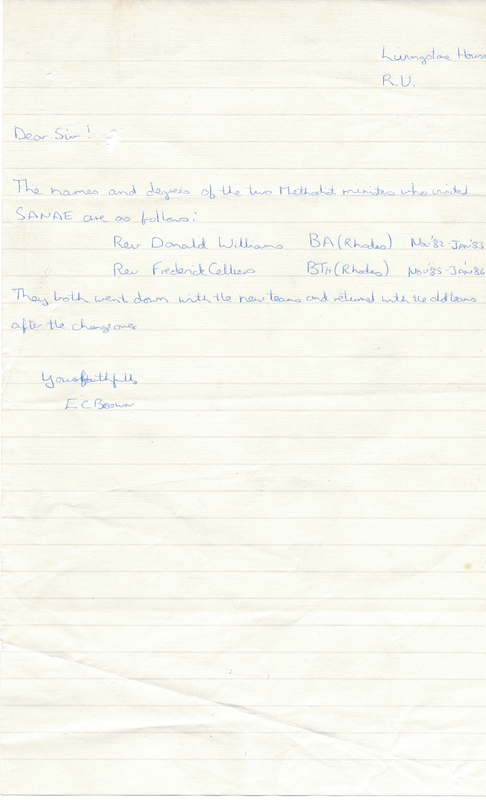 Livingstone House
R.U.
Dear Sir!
The names and degrees of the two Methodist ministers who visited
SANAE are as follows:
Rev Donald Williams BA (Rhodes) Nov '82 - Jan '83
Rev Frederick Celliers BTH (Rhodes) Nov '85 - Jan '86
They both went down with the new teams and returned with the old teams
after the changeover
Yours faithfully
E C Brown